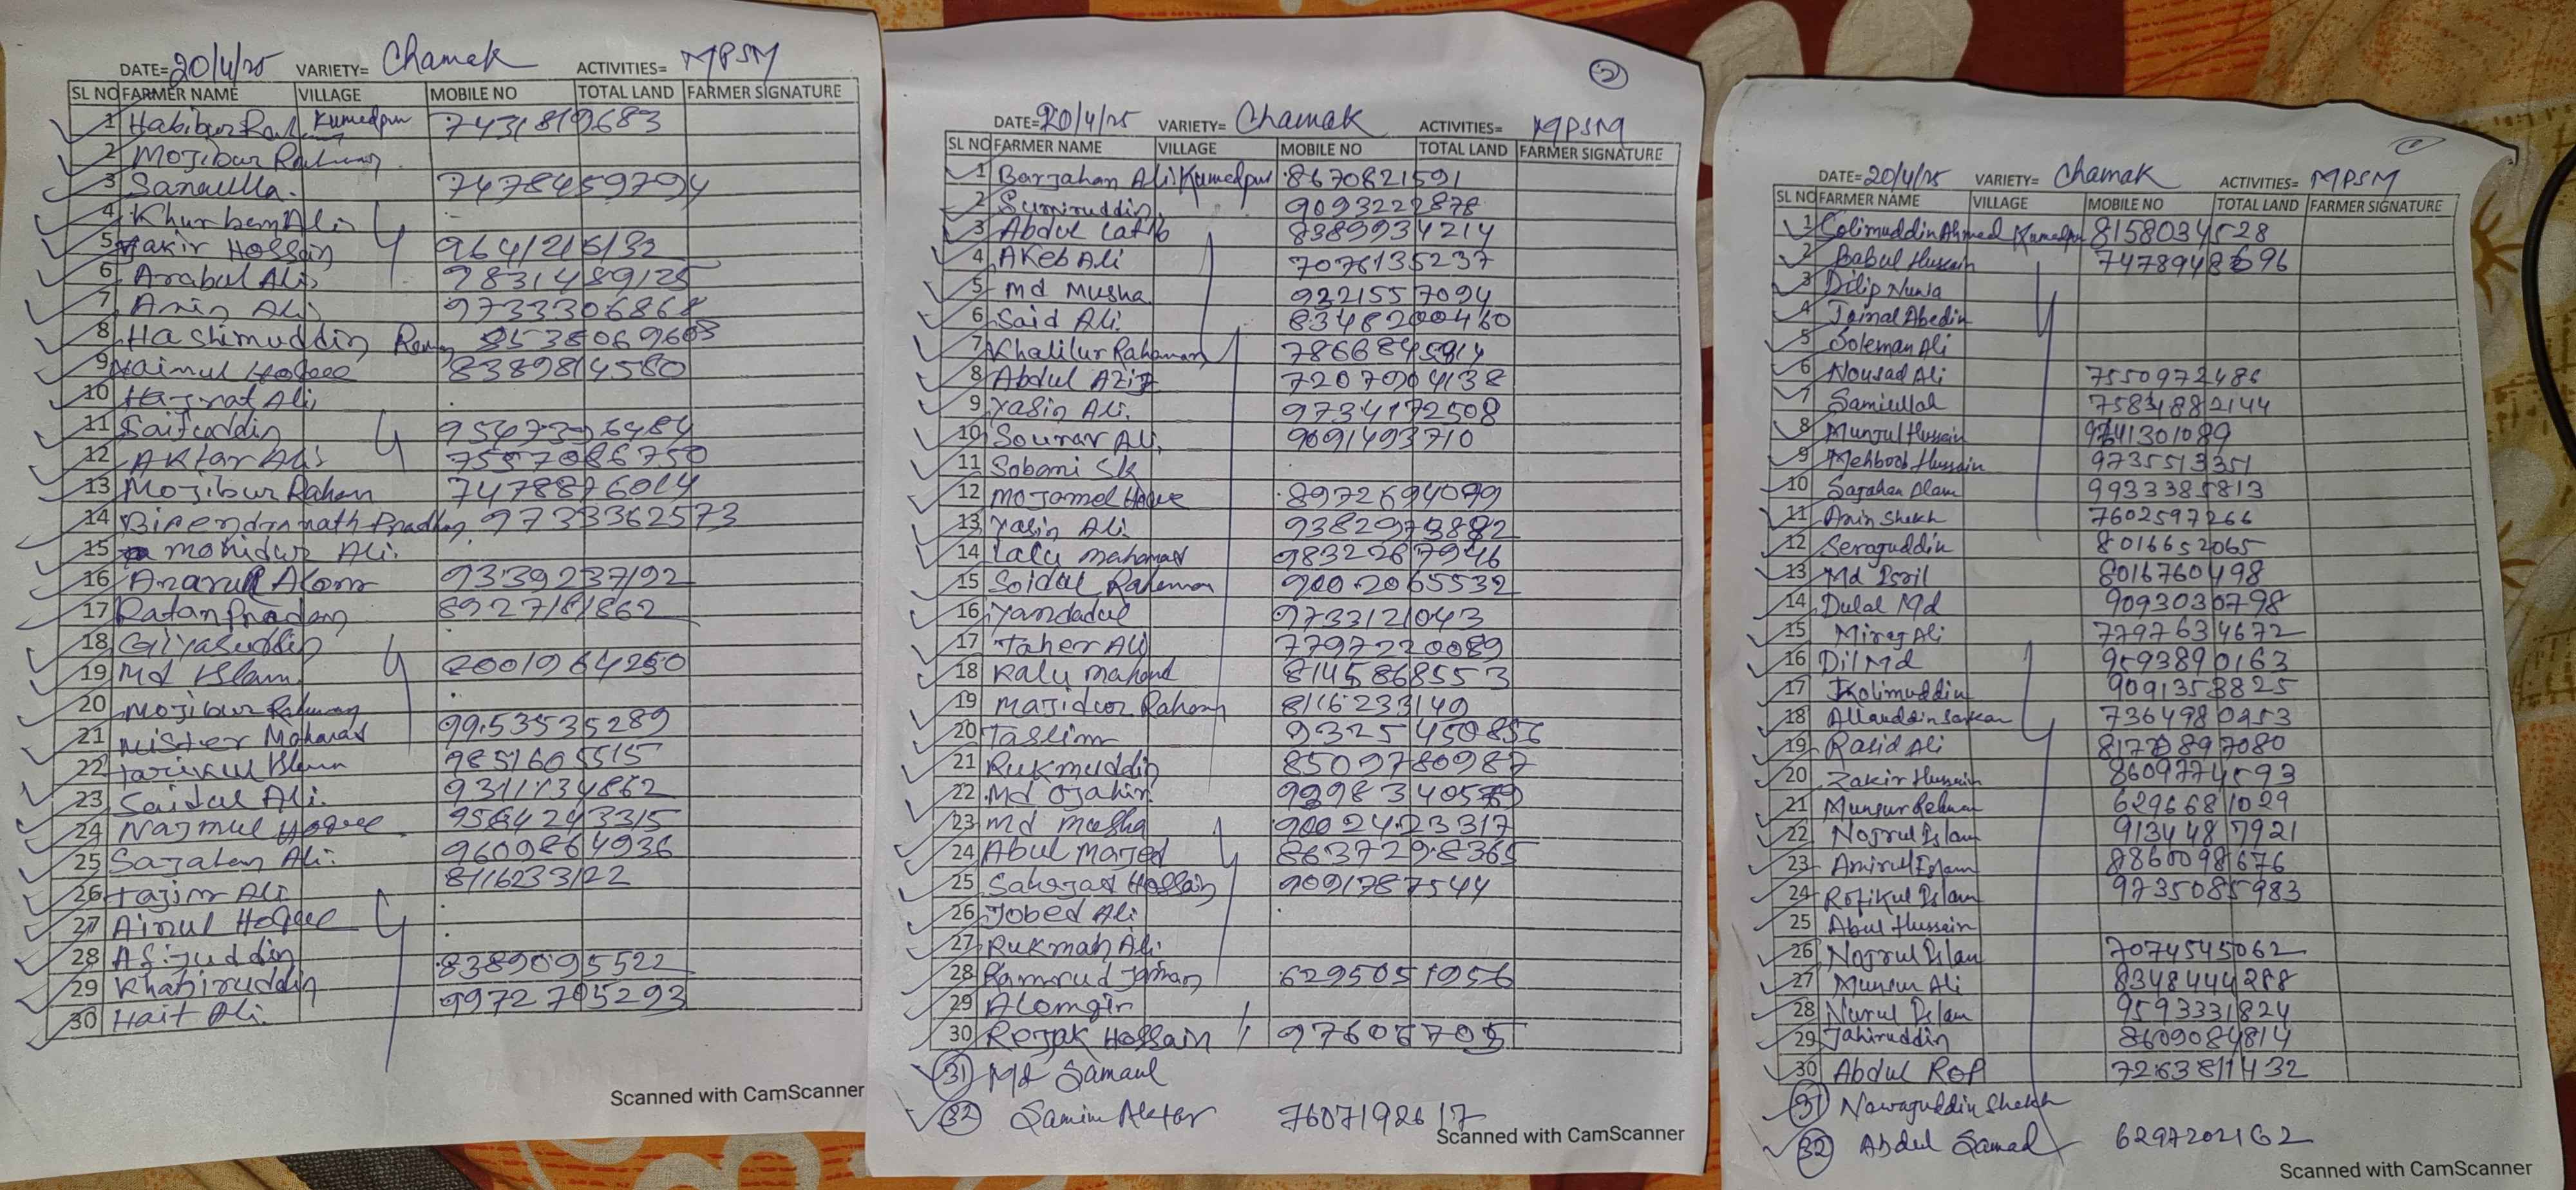 DATE= 20/4/25 VARIETY= Chamak ACTIVITIES= MPSM
SL NO FARMER NAME VILLAGE MOBILE NO TOTAL LAND FARMER SIGNATURE
1 Habibur Kumedpur 7431819683
2 Mojibur Rahman
3 Sanaulla. 7478459794
4 Khurben Ali
5 Jakir Hossain 9641216132
6 Arabul Ali 9831489125
7 Anin Ali 9733306868
8 Hashimuddin
9 Nainul Hoque 8389814580
10 Hajrat Ali
11 Saifuddin
12 Aktar Ali 7557086750
13 Mojibur Rahan 7478876014
14 Birendranath Pradhan 9733362573
15 Mohidur Ali.
16 Anarul Alom 9339237192
17 Ratan Pradan 8927181862
18 Giyasuddin
19 Md Islam
20 Mojibur Rahman
21 Mister Mahamad 9953535289
22 Tarikul Islam 9851605515
23 Saidul Ali. 9311134862
24 Najmul Hoque
25 Sajahan Ali. 9609864936
26 Tajim Ali 8116233122
27 Ainul Hoque
28 Afijuddin 8389095522
29 Khabiruddin 9972705293
30 Hait Ali.
Scanned with CamScanner
2
DATE= 20/4/25 VARIETY= Chamak ACTIVITIES= MPSM
SL NO FARMER NAME VILLAGE MOBILE NO TOTAL LAND FARMER SIGNATURE
1 Barjahan Ali Kumedpur 8670821591
2 Sumiruddin 9093222878
3 Abdul Latib 8389934214
4 AKeb Ali 7076135237
5 Md Musha 9221557094
6 Said Ali. 8348200460
7 Khalilur Rahaman
8 Abdul Aziz 7207904138
9 Yasin Ali. 9734172508
10 Sourav Ali. 9091493710
11 Sobani Sk
12 Mojamel Hoque 8972694099
13 Yasin Ali. 9382973882
14 Lalu Mahamad 9832267946
15 Soidul Rahman 9002065532
16 Yandadul 9733121043
17 Taher Ali 7797220089
18 Kalu Mahamad 8145868553
19 Majidur Rahman 8116233149
20 Taslim
21 Rukmuddin 8509780987
22 Md Ojahir
23 Md Musha 9002423317
24 Abul Majed 8637298365
25 Sahajad Hossain 9091787544
26 Jobed Ali
27 Rukman Ali.
28 Kamrud Jaman 6295051956
29 Alomgir
30 Rejak Hossain
31 Md Samaul
32 Samim Aktar 7607192617
Scanned with CamScanner
DATE= 20/4/25 VARIETY= Chamak ACTIVITIES= MPSM
SL NO FARMER NAME VILLAGE MOBILE NO TOTAL LAND FARMER SIGNATURE
1 Colimuddin Ahmed Kumedpur 8158034528
2 Babul Husain
3 Dilip Nunia
4 Joinal Abedin
5 Soleman Ali
6 Nousad Ali 7550972486
7 Samiullah
8 Munjul Hussain
9 Mehboob Hussain 9735513351
10 Sajahan Alam 9933385813
11 Anin Shekh 7602597266
12 Serajuddin 8016652065
13 Md Isril 8016760498
14 Dulal Md 9093030798
15 Miraj Ali 7797634672
16 Dil Md 9593890163
17 Kolimuddin 9091358825
18 Allauddin Sarkar 7364980253
19 Rasid Ali
20 Zakir Hussain 8609774593
21 Munsur Rehman 6296681029
22 Nojrul Islam 9134487921
23 Amirul Islam 8860098676
24 Rofikul Islam 9735085983
25 Abul Hussein
26 Nojrul Islam 7074545062
27 Munsur Ali 8348444288
28 Nurul Islam 9593331824
29 Jahiruddin 8609084814
30 Abdul Rop 7263811432
31 Nawajuddin Shekh
32 Abdul Samad 6297202162
Scanned with CamScanner